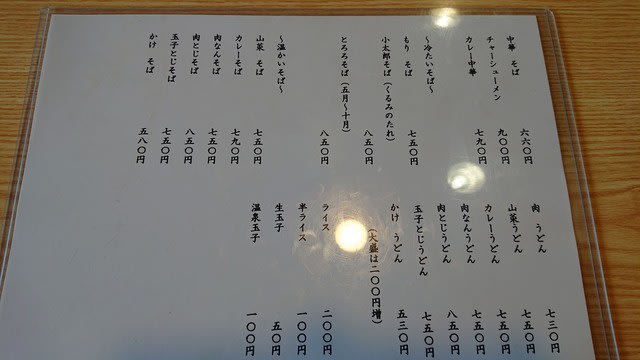 中華 そば 六六〇円
チャーシューメン 九〇〇円
カレー中華 七九〇円
～冷たいそば～
もり そば 七五〇円
小太郎そば（くるみのたれ） 八五〇円
とろろそば（五月～十月） 八五〇円
～温かいそば～
山菜 そば 七五〇円
カレーそば 七九〇円
肉なんそば 七五〇円
肉とじそば 八五〇円
玉子とじそば 七五〇円
かけ そば 五八〇円
肉 うどん 七三〇円
山菜うどん 七五〇円
カレーうどん 七五〇円
肉なんうどん 七五〇円
肉とじうどん 八五〇円
玉子とじうどん 七五〇円
かけ うどん 五三〇円
（大盛は二〇〇円増）
ライス 二〇〇円
半ライス 一〇〇円
生玉子 五〇円
温泉玉子 一〇〇円